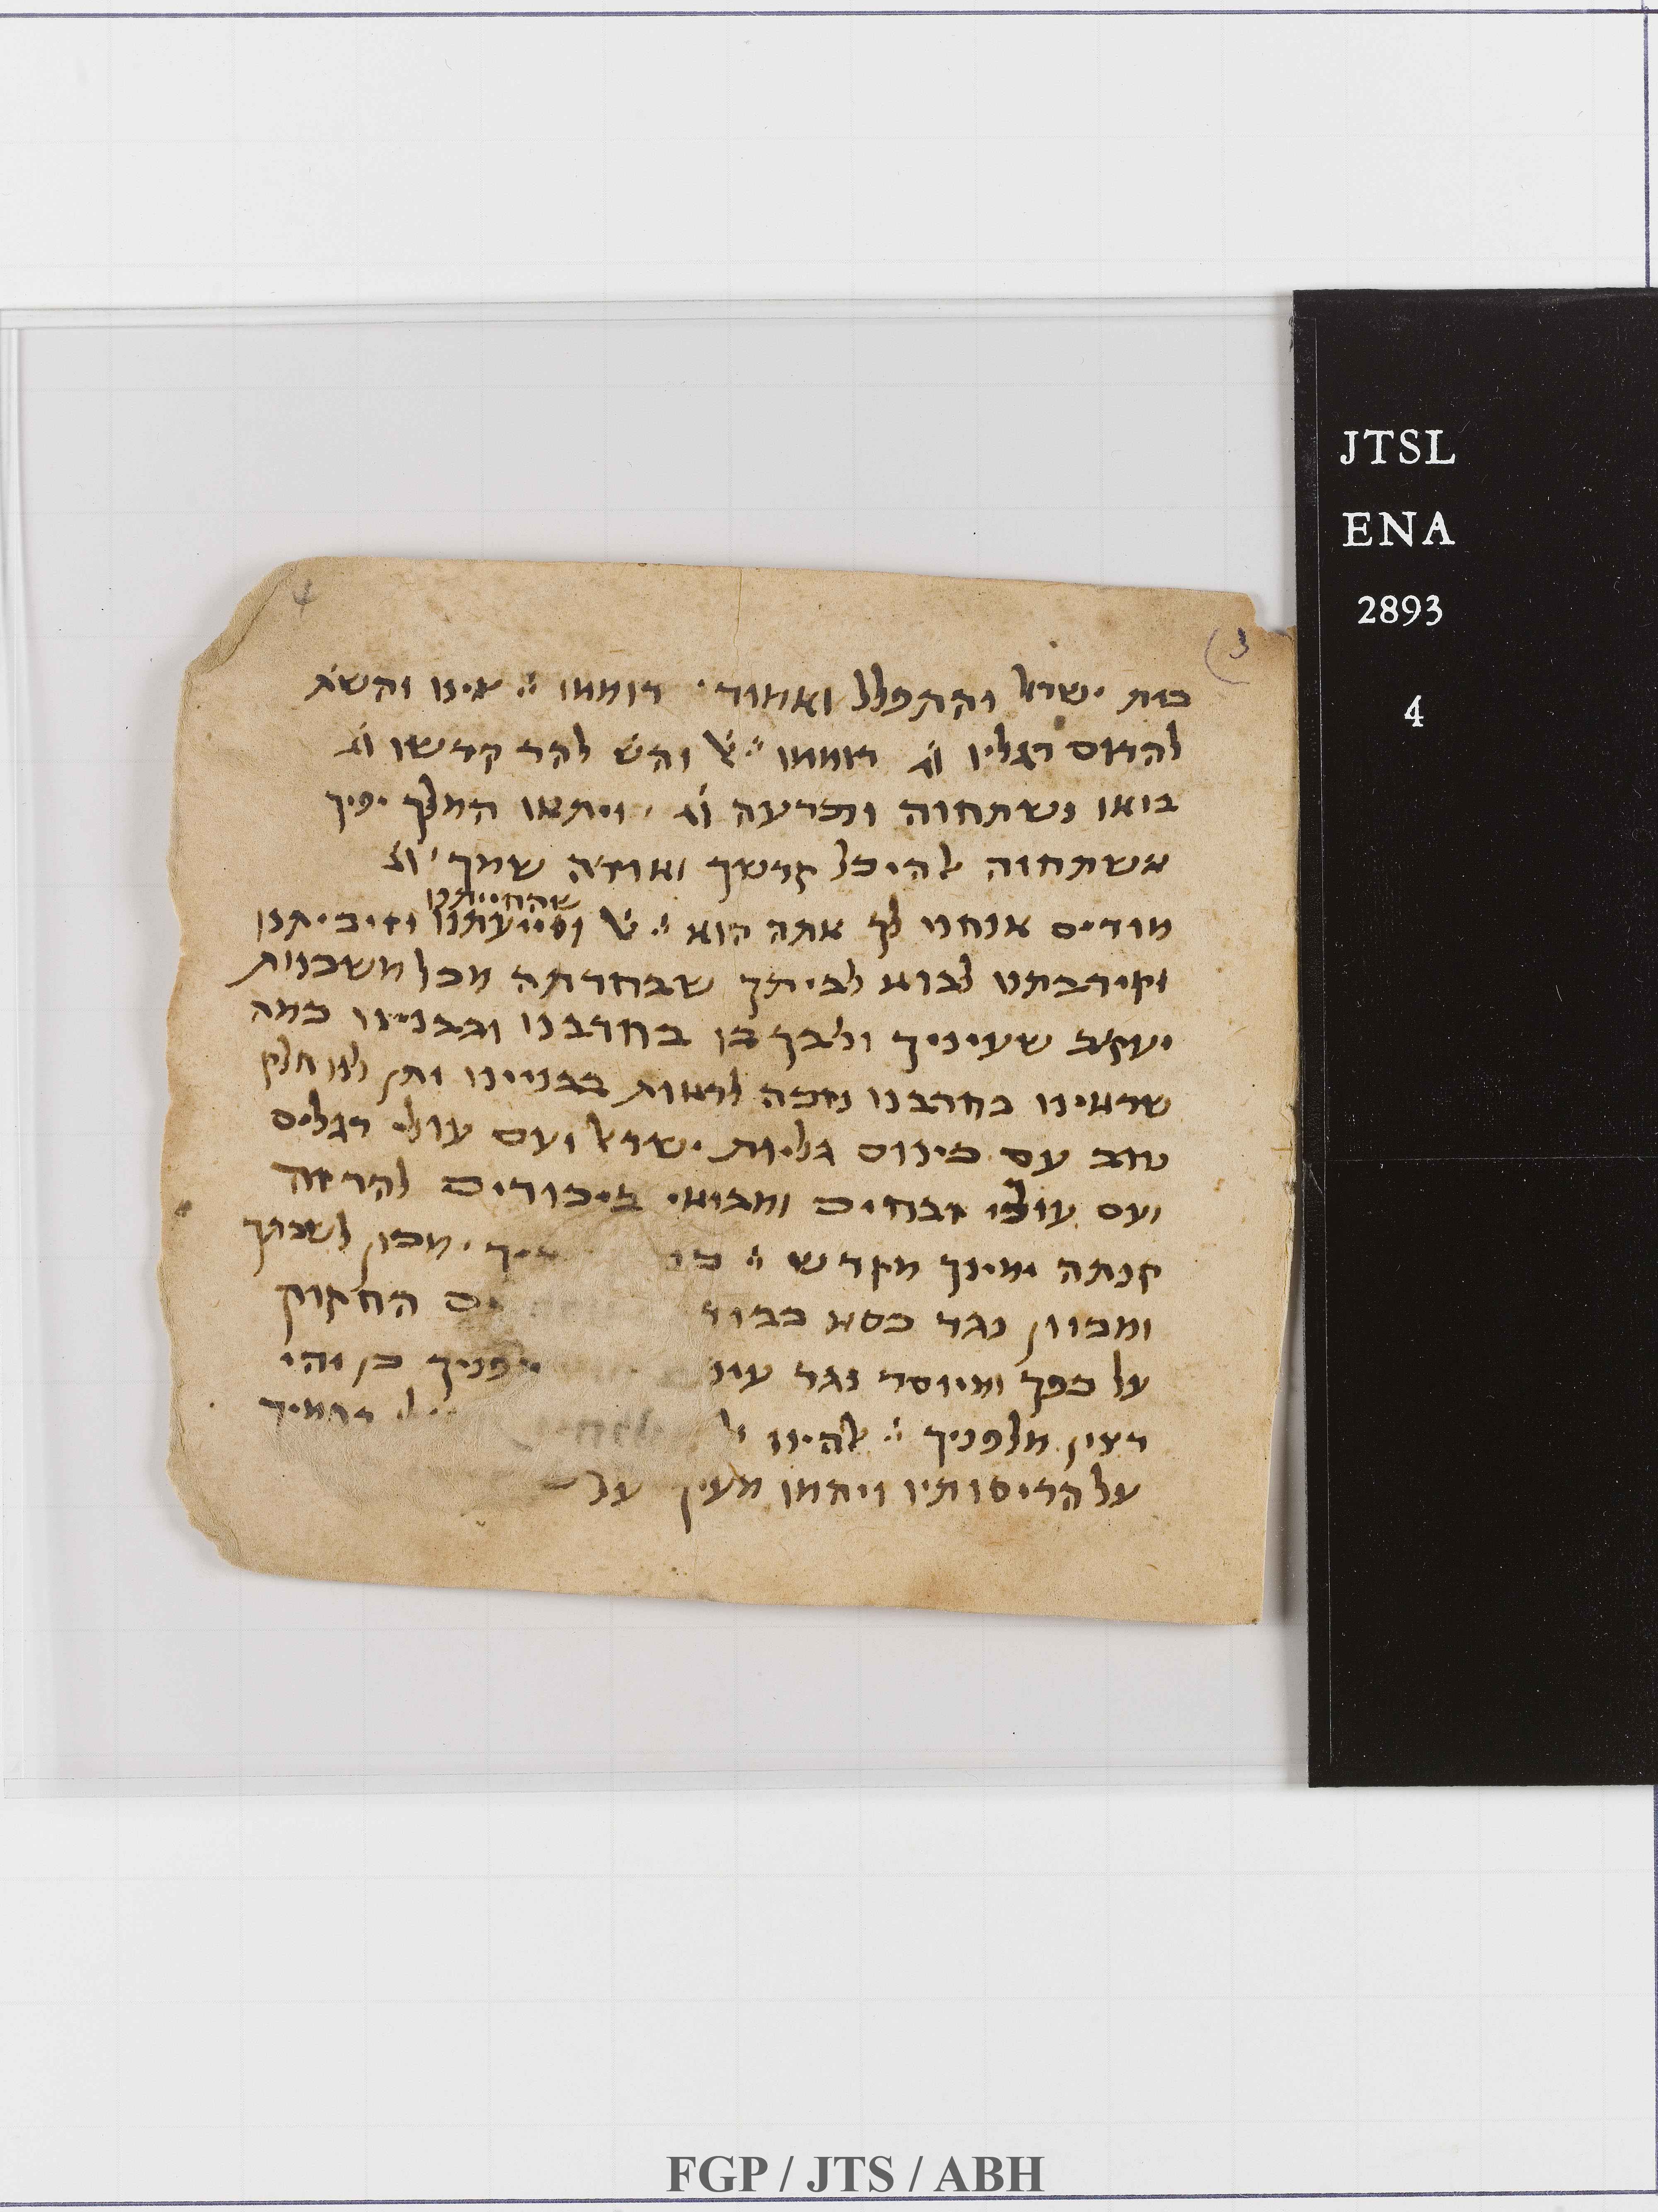 בית ישראל והתפלל ואמור רוממו יי אינו והשת
להדום רגליו וג רוממו יי א והש להר קדשו וג
בואו נשתחוה ונכרעה וג ויתאו המלך יפיך
אשתחוה אל היכל קדשך ואודה שמך וג
שהחייתנו
מודים אנחנו לך אתה הוא יי א וסייעתנו וזיכיתנו
וקירבתנו לבוא לביתך שבחרתה מכל משכנות
יעקב שעיניך ולבך בו בחרבנו ובבניינו כמה
שראינו בחרבנו נזכה לראות בבניינו ותן לנו חלק
טוב עם כינוס גליות ישראל ועם עולי רגלים
ועם עולי זבחים ומבואי ביכורים להר זה
קנתה ימינך מקדש יי מכון לשבתך
ומכוון נגד כסא כבוד החקוק
על כפך ומיוסד נגד לפניך כן יהי
רצון מלפניך יי אלהינו רחמיך
על הריסותיו ויהמו מעיך על
JTSL
ENA
2893
4
FGP / JTS / ABH